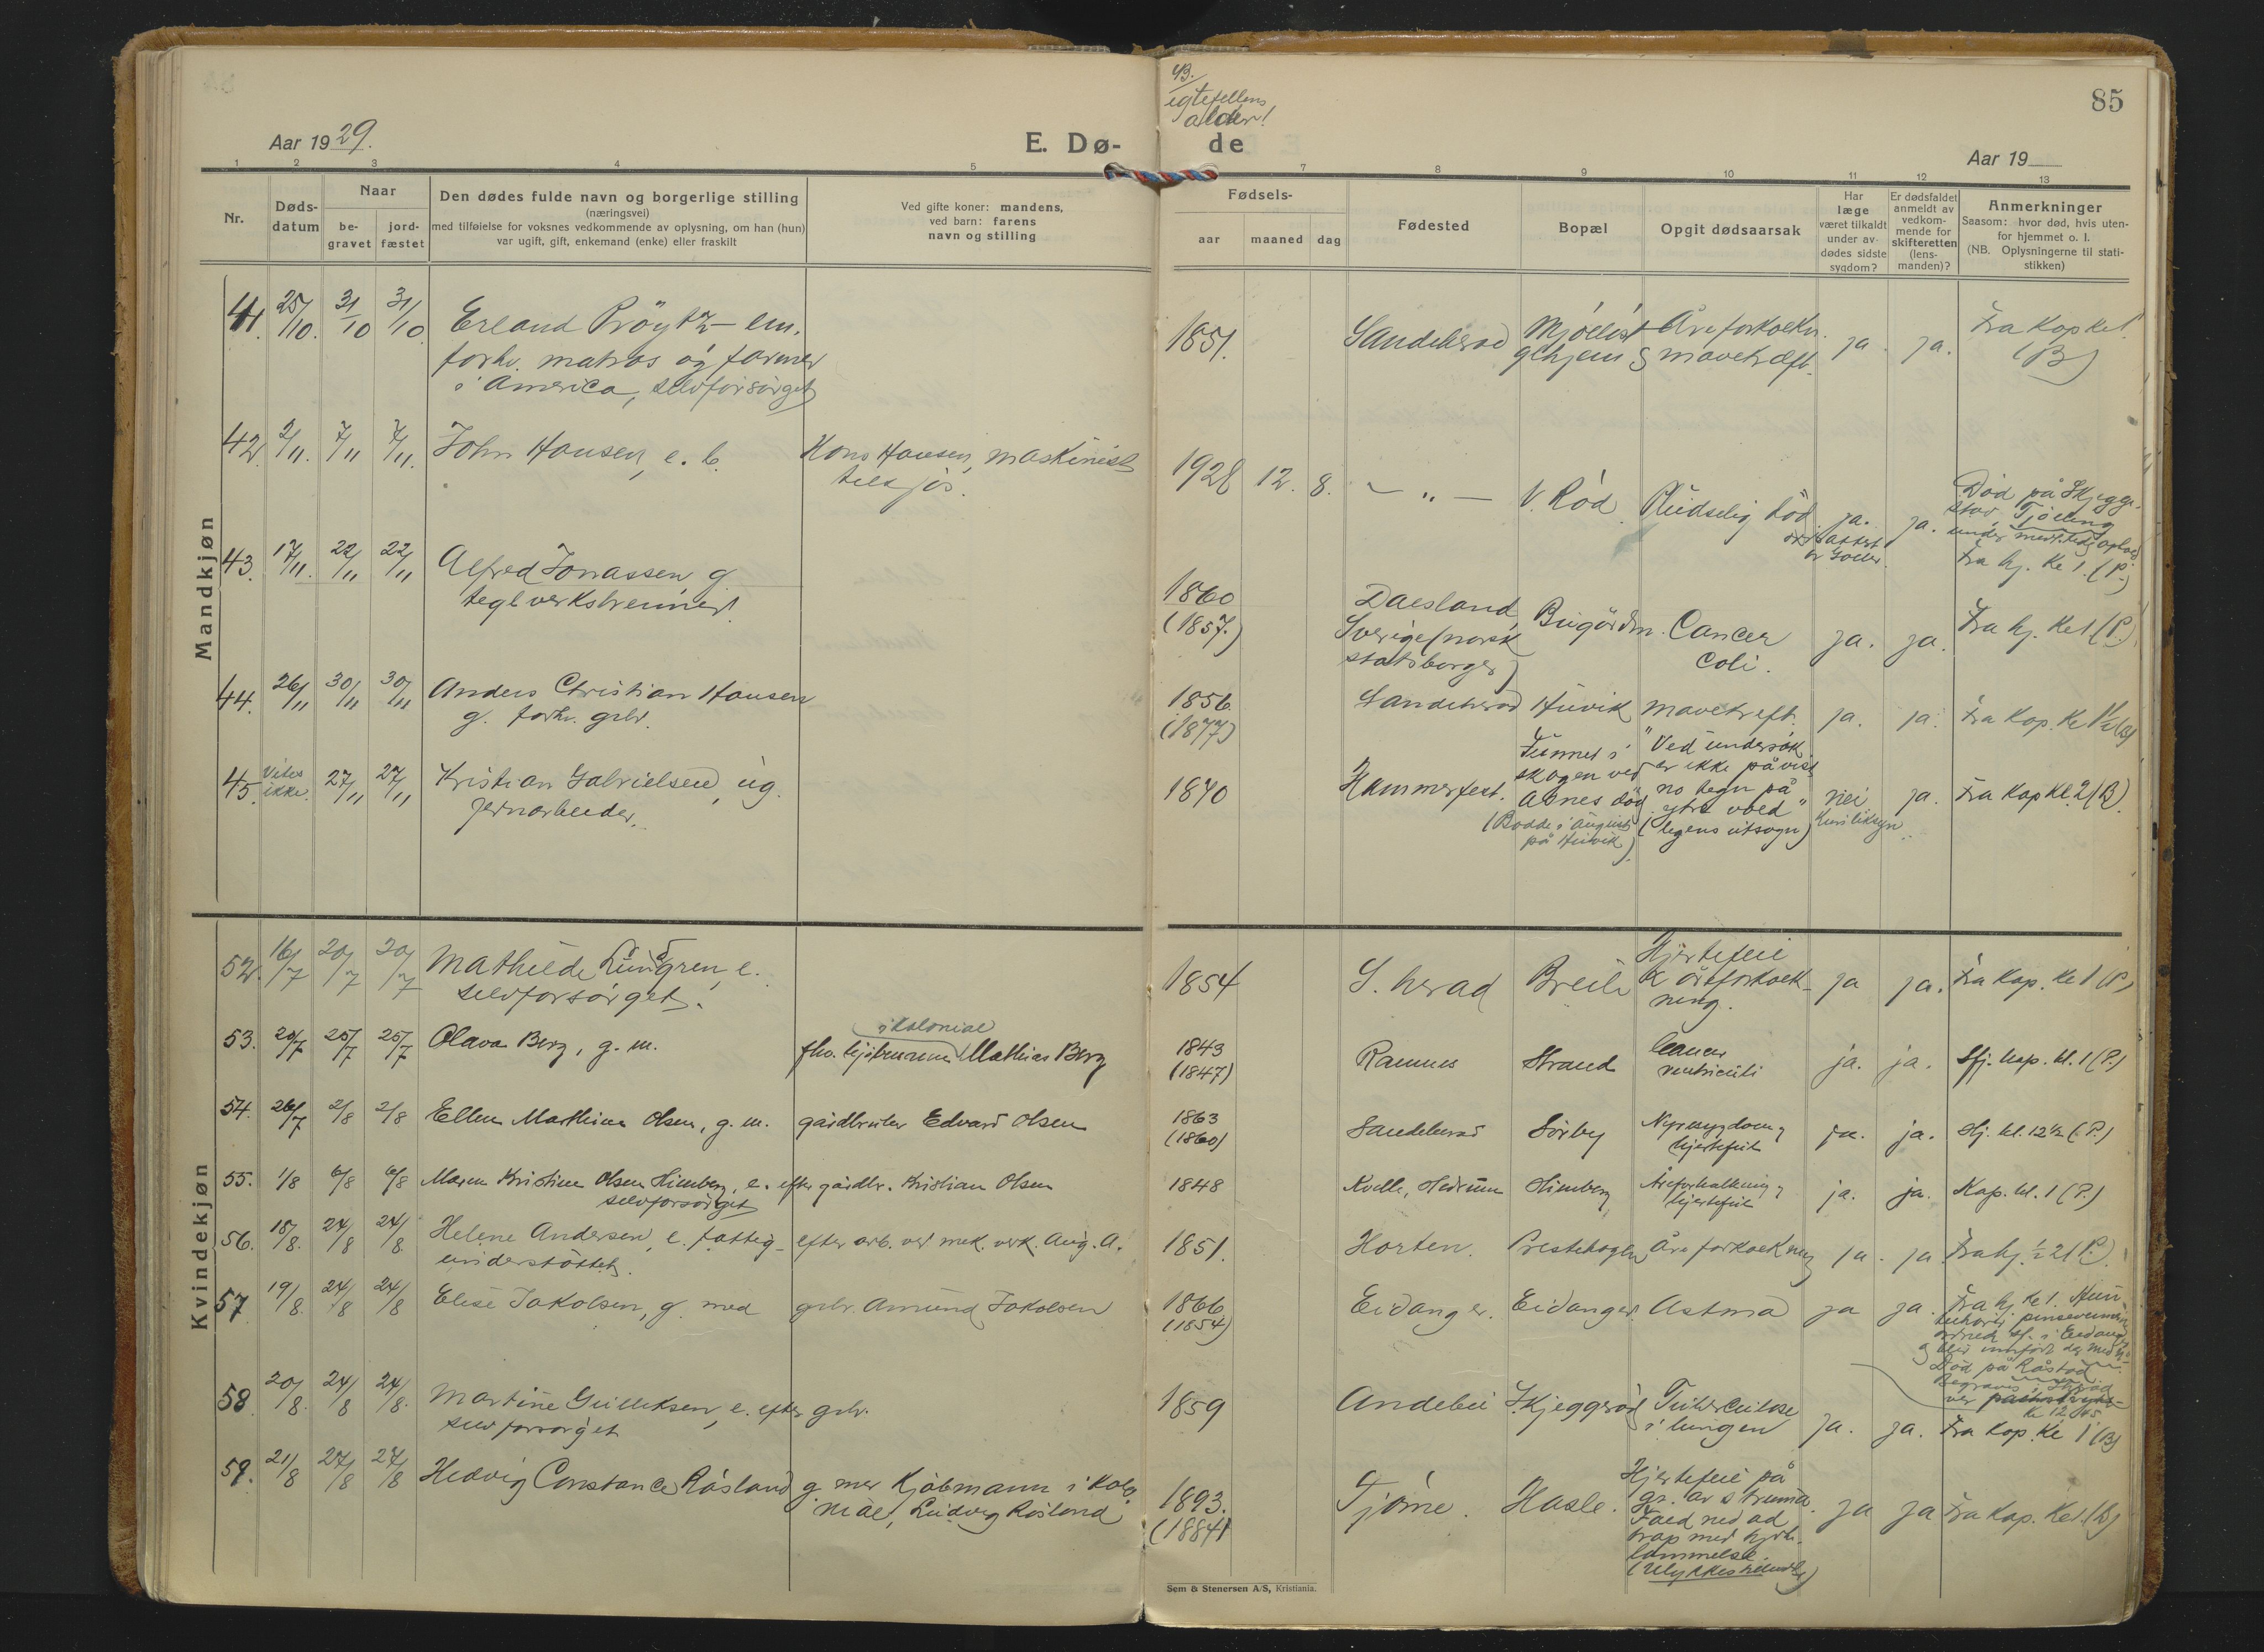 NB.
egtefellens
alder!
85
Aar 1929.
E. Dø-
de
Aar 19
1 2 3 4 5
7 8 9 10 11 12 13
Nr.
Døds-
datum
Naar
be-
gravet
jord-
fæstet
Den dødes fulde navn og borgerlige stilling
(næringsvei)
med tilføielse for voksnes vedkommende av oplysning, om han (hun)
var ugift, gift, enkemand (enke) eller fraskilt
Ved gifte koner: mandens,
ved barn: farens
navn og stilling
Fødsels-
aar maaned dag
Fødested
Bopæl
Opgit dødsaarsak
Har
læge
været tilkaldt
under av-
dødes sidste
sygdom?
Er dødsfaldet
anmeldt av
vedkom-
mende for
skifteretten
(lens-
manden)?
Anmerkninger
Saasom: hvor død, hvis uten-
for hjemmet o. l.
(NB. Oplysningerne til stati-
stikken)
Mandkjøn
41. 25/10. 31/10 31/10 Erland Pröytz – em.
forhv. matros og farmer
i America, selvforsörget
1851. Sandeherad
gchjem & mavekræft. ja. ja. Fra kap kl 1
(B)
42. 2/11. 7/11 7/11. John Hansen, e. b. Hans Hansen, maskinist
tilsjös.
1928 12. 8. – „ – V. Röd Pludselig död ja. ja.
Död på Skjegge-
stad, Tjölling
Fra hj. kl 1. (P.)
43. 17/11. 22/11 22/11 Alfred Jonassen g
teglverksbrenner.
1860
(1857.) Dalsland,
Sverige (norsk
statsborger) Bugårdn. Cancer
coli. ja. ja. Fra hj. kl 1 (P.)
44. 26/11 30/11 30/11 Anders Christian Hansen
g. forhv. grbr.
1856.
(1877) Sandeherad Huvik mavekreft. ja. ja. Fra kap. kl 1½ (B)
45. Vites
ikke. 27/11 27/11 Kristian Gabrielsen, ug.
jernarbeider.
1870 Hammerfest.
Funnet i
skogen ved
Asnes död
(Bodde i august
på Huvik).
"Ved undersøk.
er ikke påvist
no tegn på
ytre vold"
(legens utsagn)
nei
kun liksyn. ja. Fra kap kl. 2 (B).
Kvindekjøn
52. 16/7 20/7 20/7 Mathilde Lundgren, e.
selvforsörget.
1854 S. herad Breili Hjertefeil
& åreforkalk-
ning. ja ja. Fra kap. kl 1 (P)
53. 20/7 25/7 25/7 Olava Berg, g. m.
i kolonial
fhv. kjöbmann Mathias Berg
1843
(1847) Ramnes Strand Cancer
ventriculi ja. ja. Sfj. kap. kl. 1 (P.)
54. 26/7 2/8 2/8 Ellen Mathine Olsen, g. m. gårdbruker Edvard Olsen
1863
(1860) Sandeherad Sörby Nyresygdom &
hjertefeil ja. ja. Hj. kl. 12½ (P.)
55. 1/8 6/8 6/8 Maren Kristine Olsen Himberg, e. efter gårdbr. Kristian Olsen
selvforsörget
1848 Kvelle, Hedrum Himberg Åreforkalkning &
hjertefeil ja. ja. Kap. kl. 1 (P.)
56. 18/8. 24/8 24/8. Helene Andersen, e. fattig- efter arb. ved mek. verk. Aug. A.
understöttet.
1851. Horten. Prestehagen Åreforkalkning ja. ja Fra hj. ½ 2 (P.)
57 19/8. 24/8 24/8 Elise Jakobsen, g. med grbr. Amund Jakobsen
1866
(1854) Eidanger. Eidanger Astma ja ja. Fra hj. kl 1. Hun
tilhörte pinsevennene
58 20/8. 24/8 24/8. Martine Gulliksen, e. efter grbr.
selvforsörget
1859 Andebu Skjeggeröd Tuberculose
i lungen ja. ja.
Död på Råstad
Fra kap. kl 1 (B)
59. 21/8 27/8 27/8 Hedvig Constance Råsland g. med Kjöbmann i kolo-
nial, Ludvig Råsland
1893.
(1884) Tjöme. Hasle. Hjertefeil på
gr. av struma.
Fald ned ad
trap med hjerte-
lammelse.
(Ulykkestilfælde)
ja ja Fra kap. kl 1 (B)
Sem & Stenersen A/S, Kristiania.